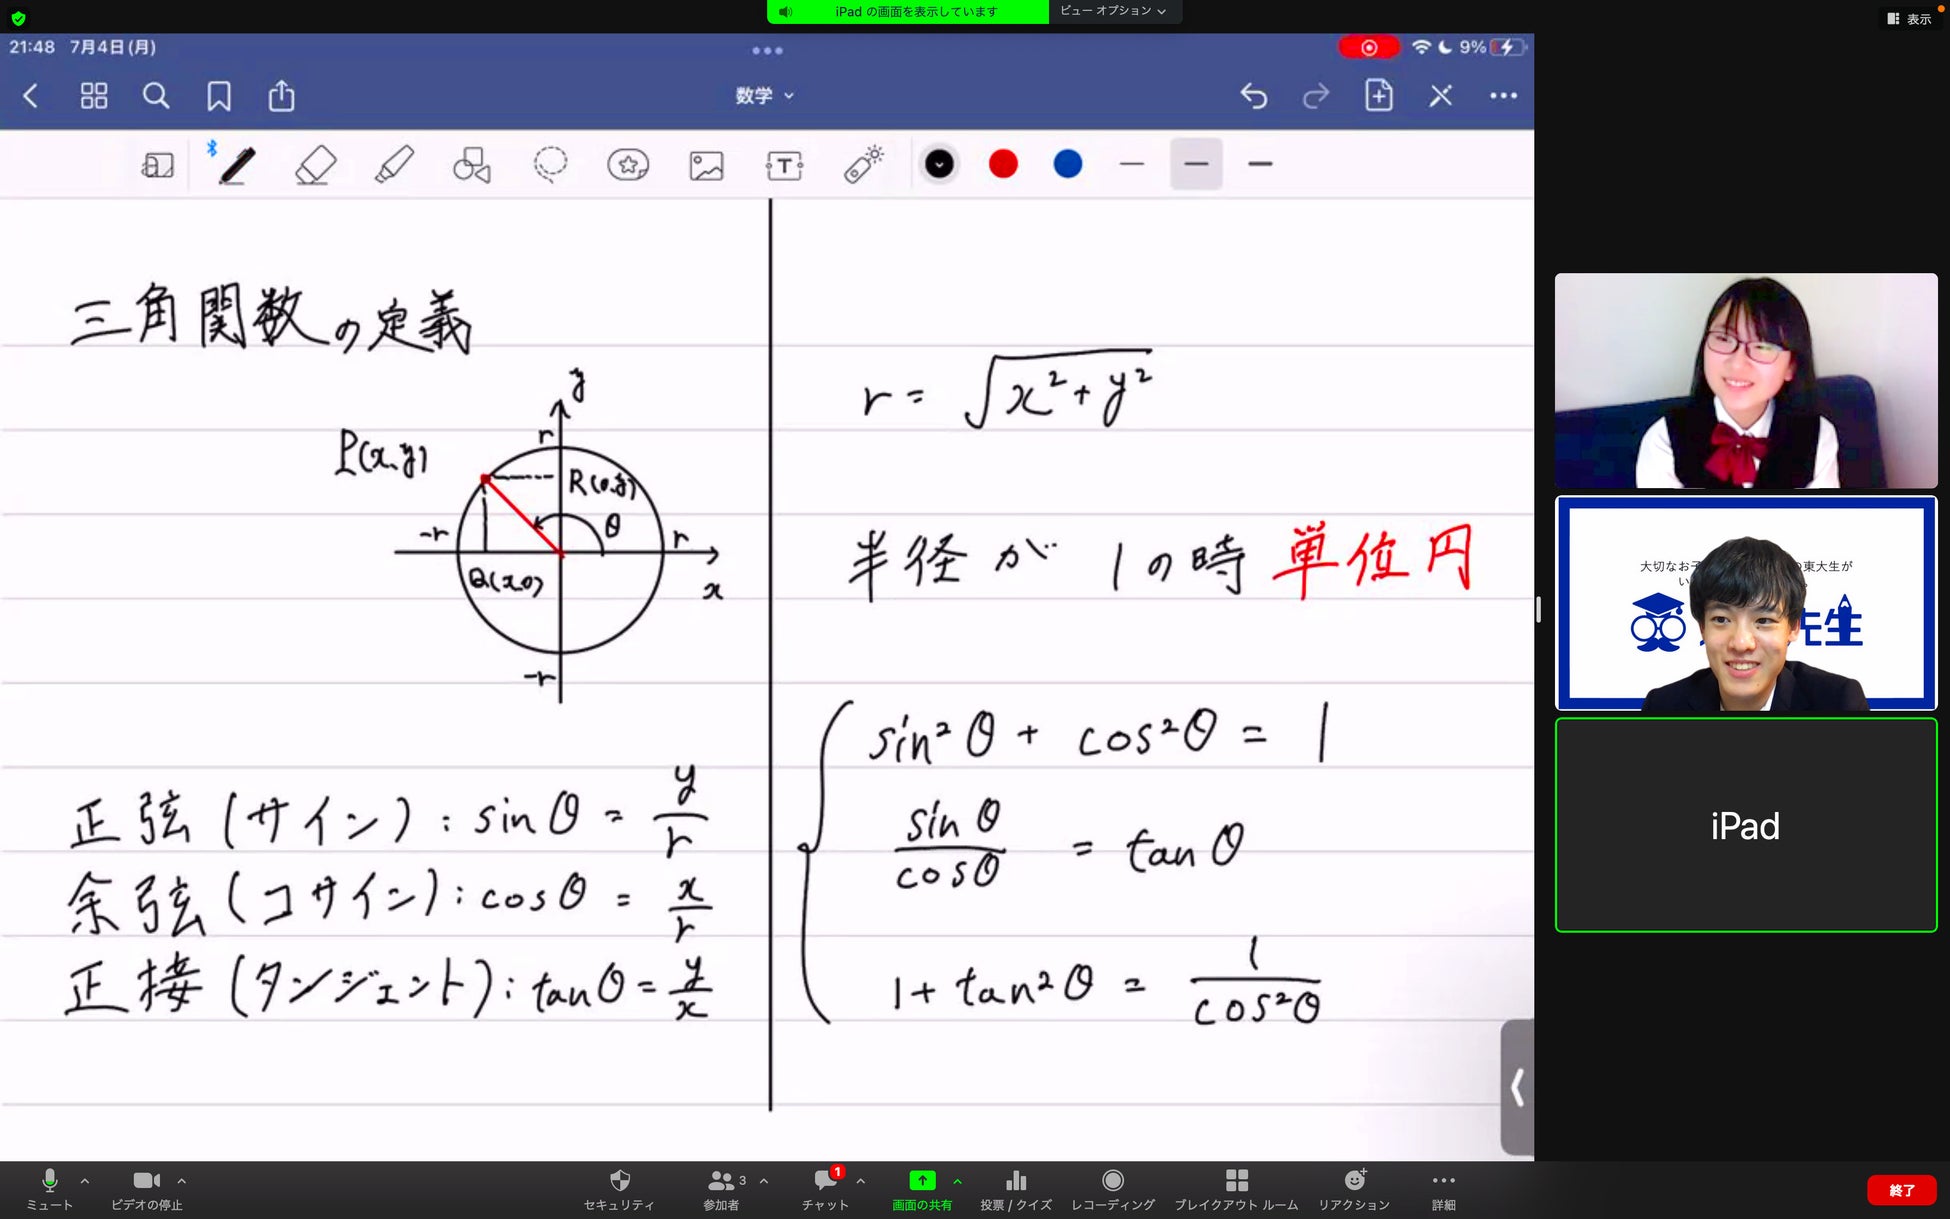 iPad の画面を表示しています
ビュー オプション
表示
21:48 7月4日(月)
9%
数学
三角関数の定義
y
r
P(x,y)
R(0,y)
θ
-r
r
Q(x,0)
x
-r
正弦(サイン):sinθ = y/r
余弦(コサイン):cosθ = x/r
正接(タンジェント):tanθ = y/x
r = √x²+y²
半径が 1の時 単位円
sin²θ + cos²θ = 1
sinθ/cosθ = tanθ
1+tan²θ = 1/cos²θ
大切なお子
の東大生が
い
先生
iPad
ミュート
ビデオの停止
セキュリティ
3
参加者
1
チャット
画面の共有
投票 / クイズ
レコーディング
ブレイクアウト ルーム
リアクション
詳細
終了